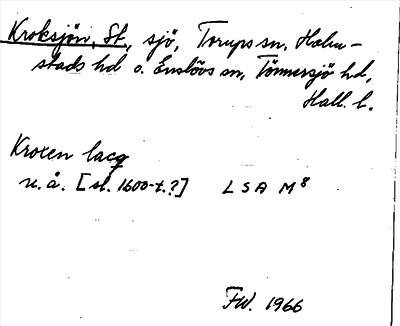 Kroksjön, St., sjö, Torups sn, Halm-
stads hd o. Enslövs sn, Tönnersjö hd,
Hall. l.
Kroxen lacq
u.å. [sl. 1600-t.?] LSA M⁸
FW. 1966